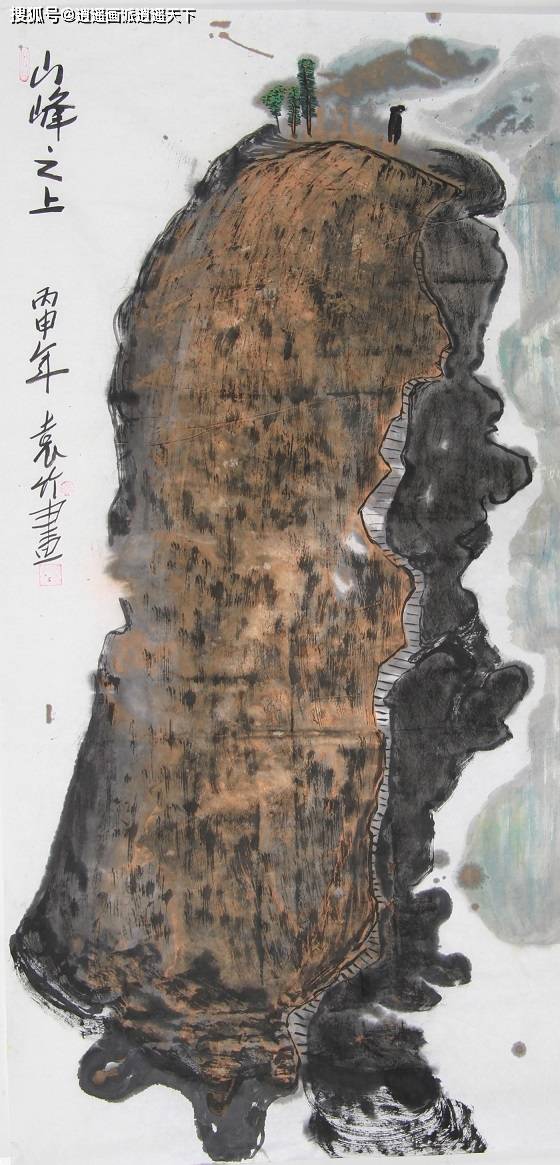 搜狐号@逍遥画派逍遥天下
山峰之上
丙申年 袁竹画